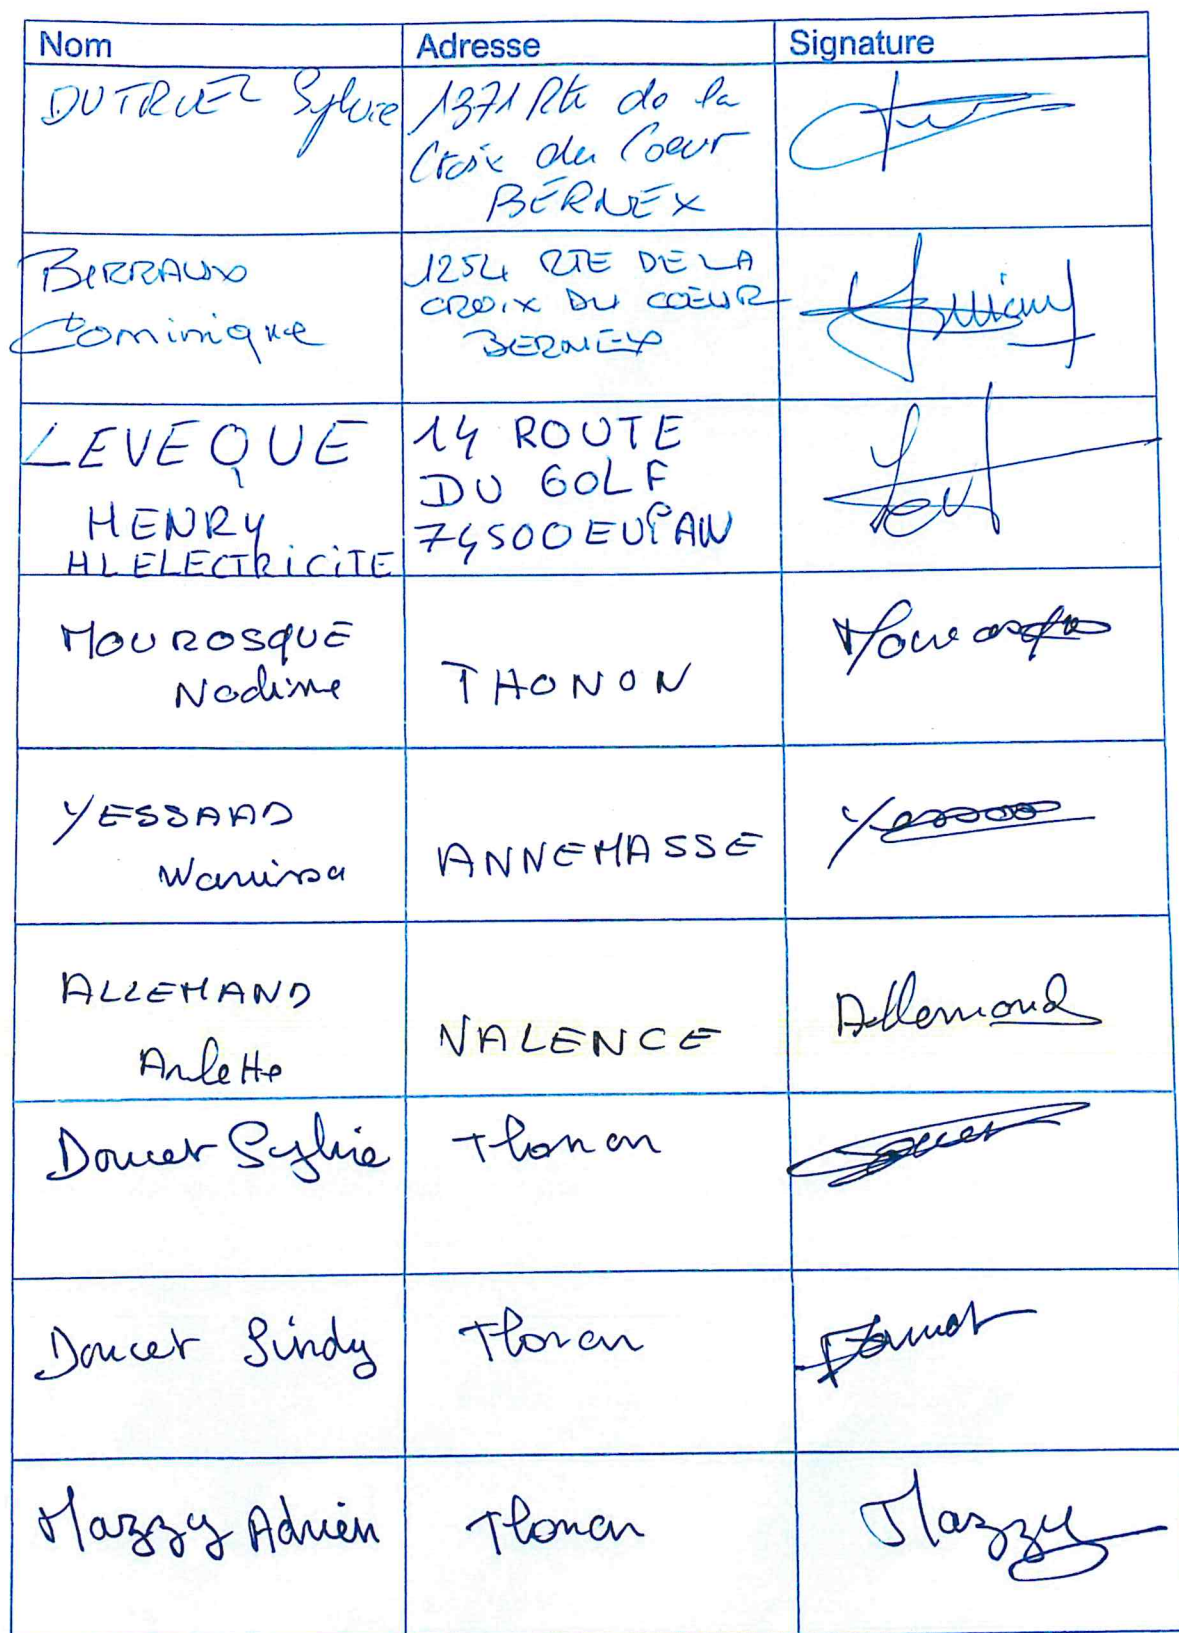 Nom Adresse Signature
DUTRUEL Sylvie
1371 Rte de la
Croix du Coeur
BERNEX
BIRRAUX
Dominique
1254 RTE DE LA
CROIX DU COEUR
BERNEX
LEVEQUE
HENRY
HL ELECTRICITE
14 ROUTE
DU GOLF
74500
MOUROSQUE
Nadine
THONON
YESSAAD
Wanissa
ANNEMASSE
ALLEMAND
Arlette
VALENCE
Allemand
Doucet Sylvie
Thonon
Doucet Sindy
Thonon
Doucet
Mazzy Adrien
Thonon
Mazzy